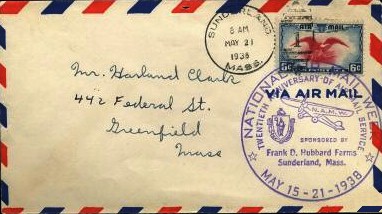 SUNDERLAND
8 AM
MAY 21
1938
MASS.
AIR MAIL
6¢ 6¢
Mr. Harland Clark
442 Federal St.
Greenfield
Mass
VIA AIR MAIL
NATIONAL AIR MAIL WEEK
TWENTIETH ANNIVERSARY OF AIR MAIL SERVICE
N.A.M.W.
SPONSORED BY
Frank D. Hubbard Farms
Sunderland, Mass.
MAY 15-21-1938